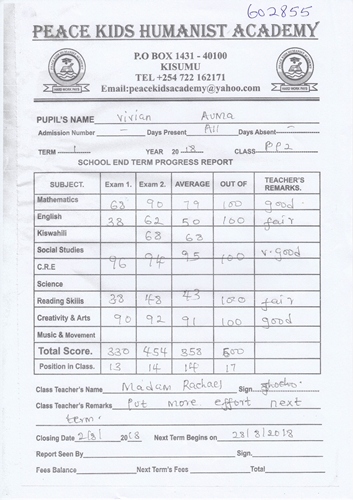 602855
PEACE KIDS HUMANIST ACADEMY
P.O BOX 1431 - 40100
KISUMU
TEL +254 722 162171
Email:peacekidsacademy@yahoo.com
PUPIL'S NAME Vivian Auma
Admission Number — Days Present All Days Absent —
TERM 1 YEAR 2018 CLASS PP2
SCHOOL END TERM PROGRESS REPORT
SUBJECT. Exam 1. Exam 2. AVERAGE OUT OF TEACHER'S REMARKS.
Mathematics 68 90 79 100 good
English 38 62 50 100 fair
Kiswahili 68 68
Social Studies
C.R.E 96 94 95 100 v.good
Science
Reading Skills 38 48 43 100 fair
Creativity & Arts 90 92 91 100 good
Music & Movement
Total Score. 330 454 358 500
Position in Class. 13 14 14 17
Class Teacher's Name Madam Rachael Sign.
Class Teacher's Remarks Put more effort next
term.
Closing Date 2/8/ 2018 Next Term Begins on 28/8/2018
Report Seen By Sign.
Fees Balance Next Term's Fees Total